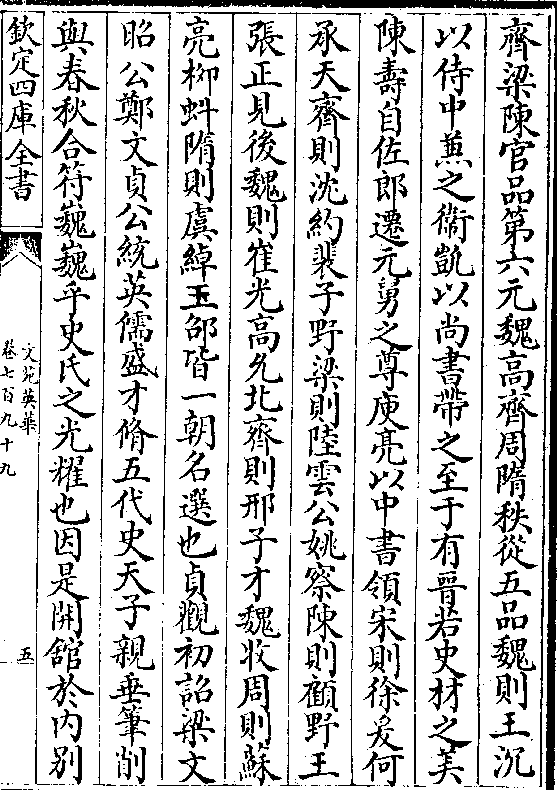 齊梁陳官品第六元魏高齊周隋秩從五品魏則王沉
以侍中兼之衛凱以尚書帶之至于有晉若史材之美
陳壽自佐郎遷元舅之尊庾亮以中書領宋則徐爰何
承天齊則沈約裴子野梁則陸雲公姚察陳則顧野王
張正見後魏則崔光高允北齊則邢子才魏收周則蘇
亮柳虯隋則虞綽王邵皆一朝名選也貞觀初詔梁文
昭公鄭文貞公統英儒盛才脩五代史天子親垂筆削
與春秋合符巍巍乎史氏之光耀也因是開舘於内别
欽定四庫全書
文苑英華
卷七百九十九
五